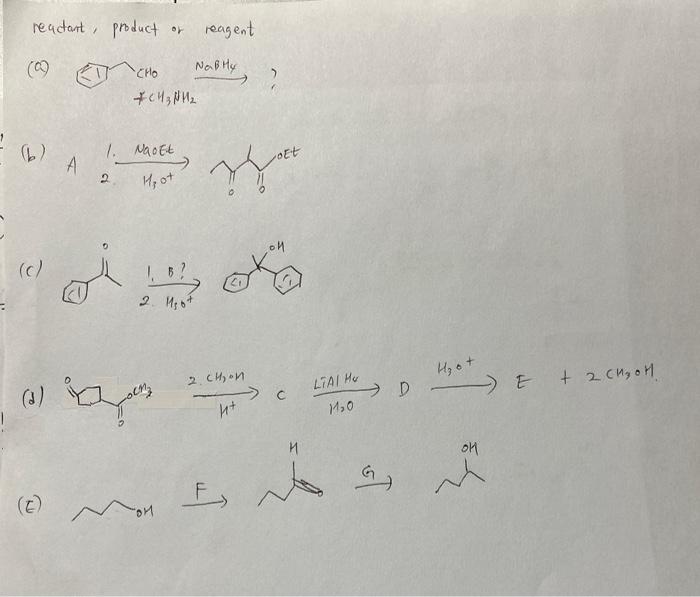 reactant, product or reagent
(a) CHO NaBH4 ?
*CH3NH2
(b) A 1. NaOEt OEt
2. H3O+ O O
(c) O 1. B? OH
2. H3O+
(d) O OCH3 O 2. CH3OH H+ C LiAlH4 H2O D H3O+ E + 2 CH3OH.
(E) OH F H G OH